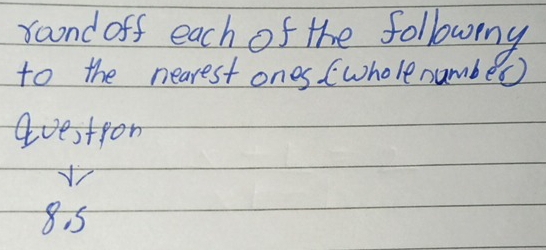 round off each of the following
to the nearest ones (whole number)
Question
8.5